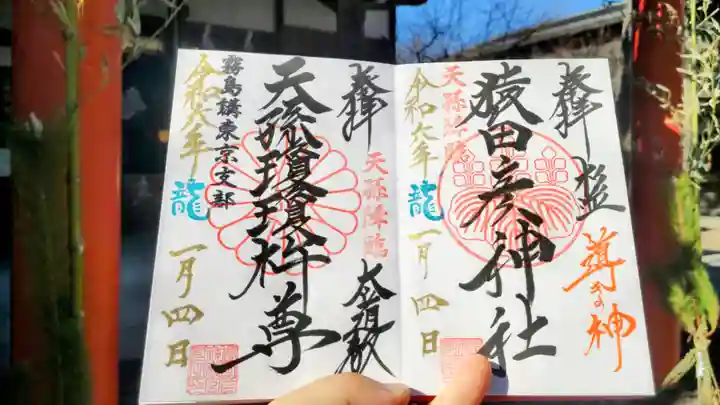 奉拝
導きの神
猿田彦神社
天孫降臨
令和六年
龍
一月四日
奉拝
天孫降臨
天孫瓊瓊杵尊
霧島講東京支部
令和六年
龍
一月四日